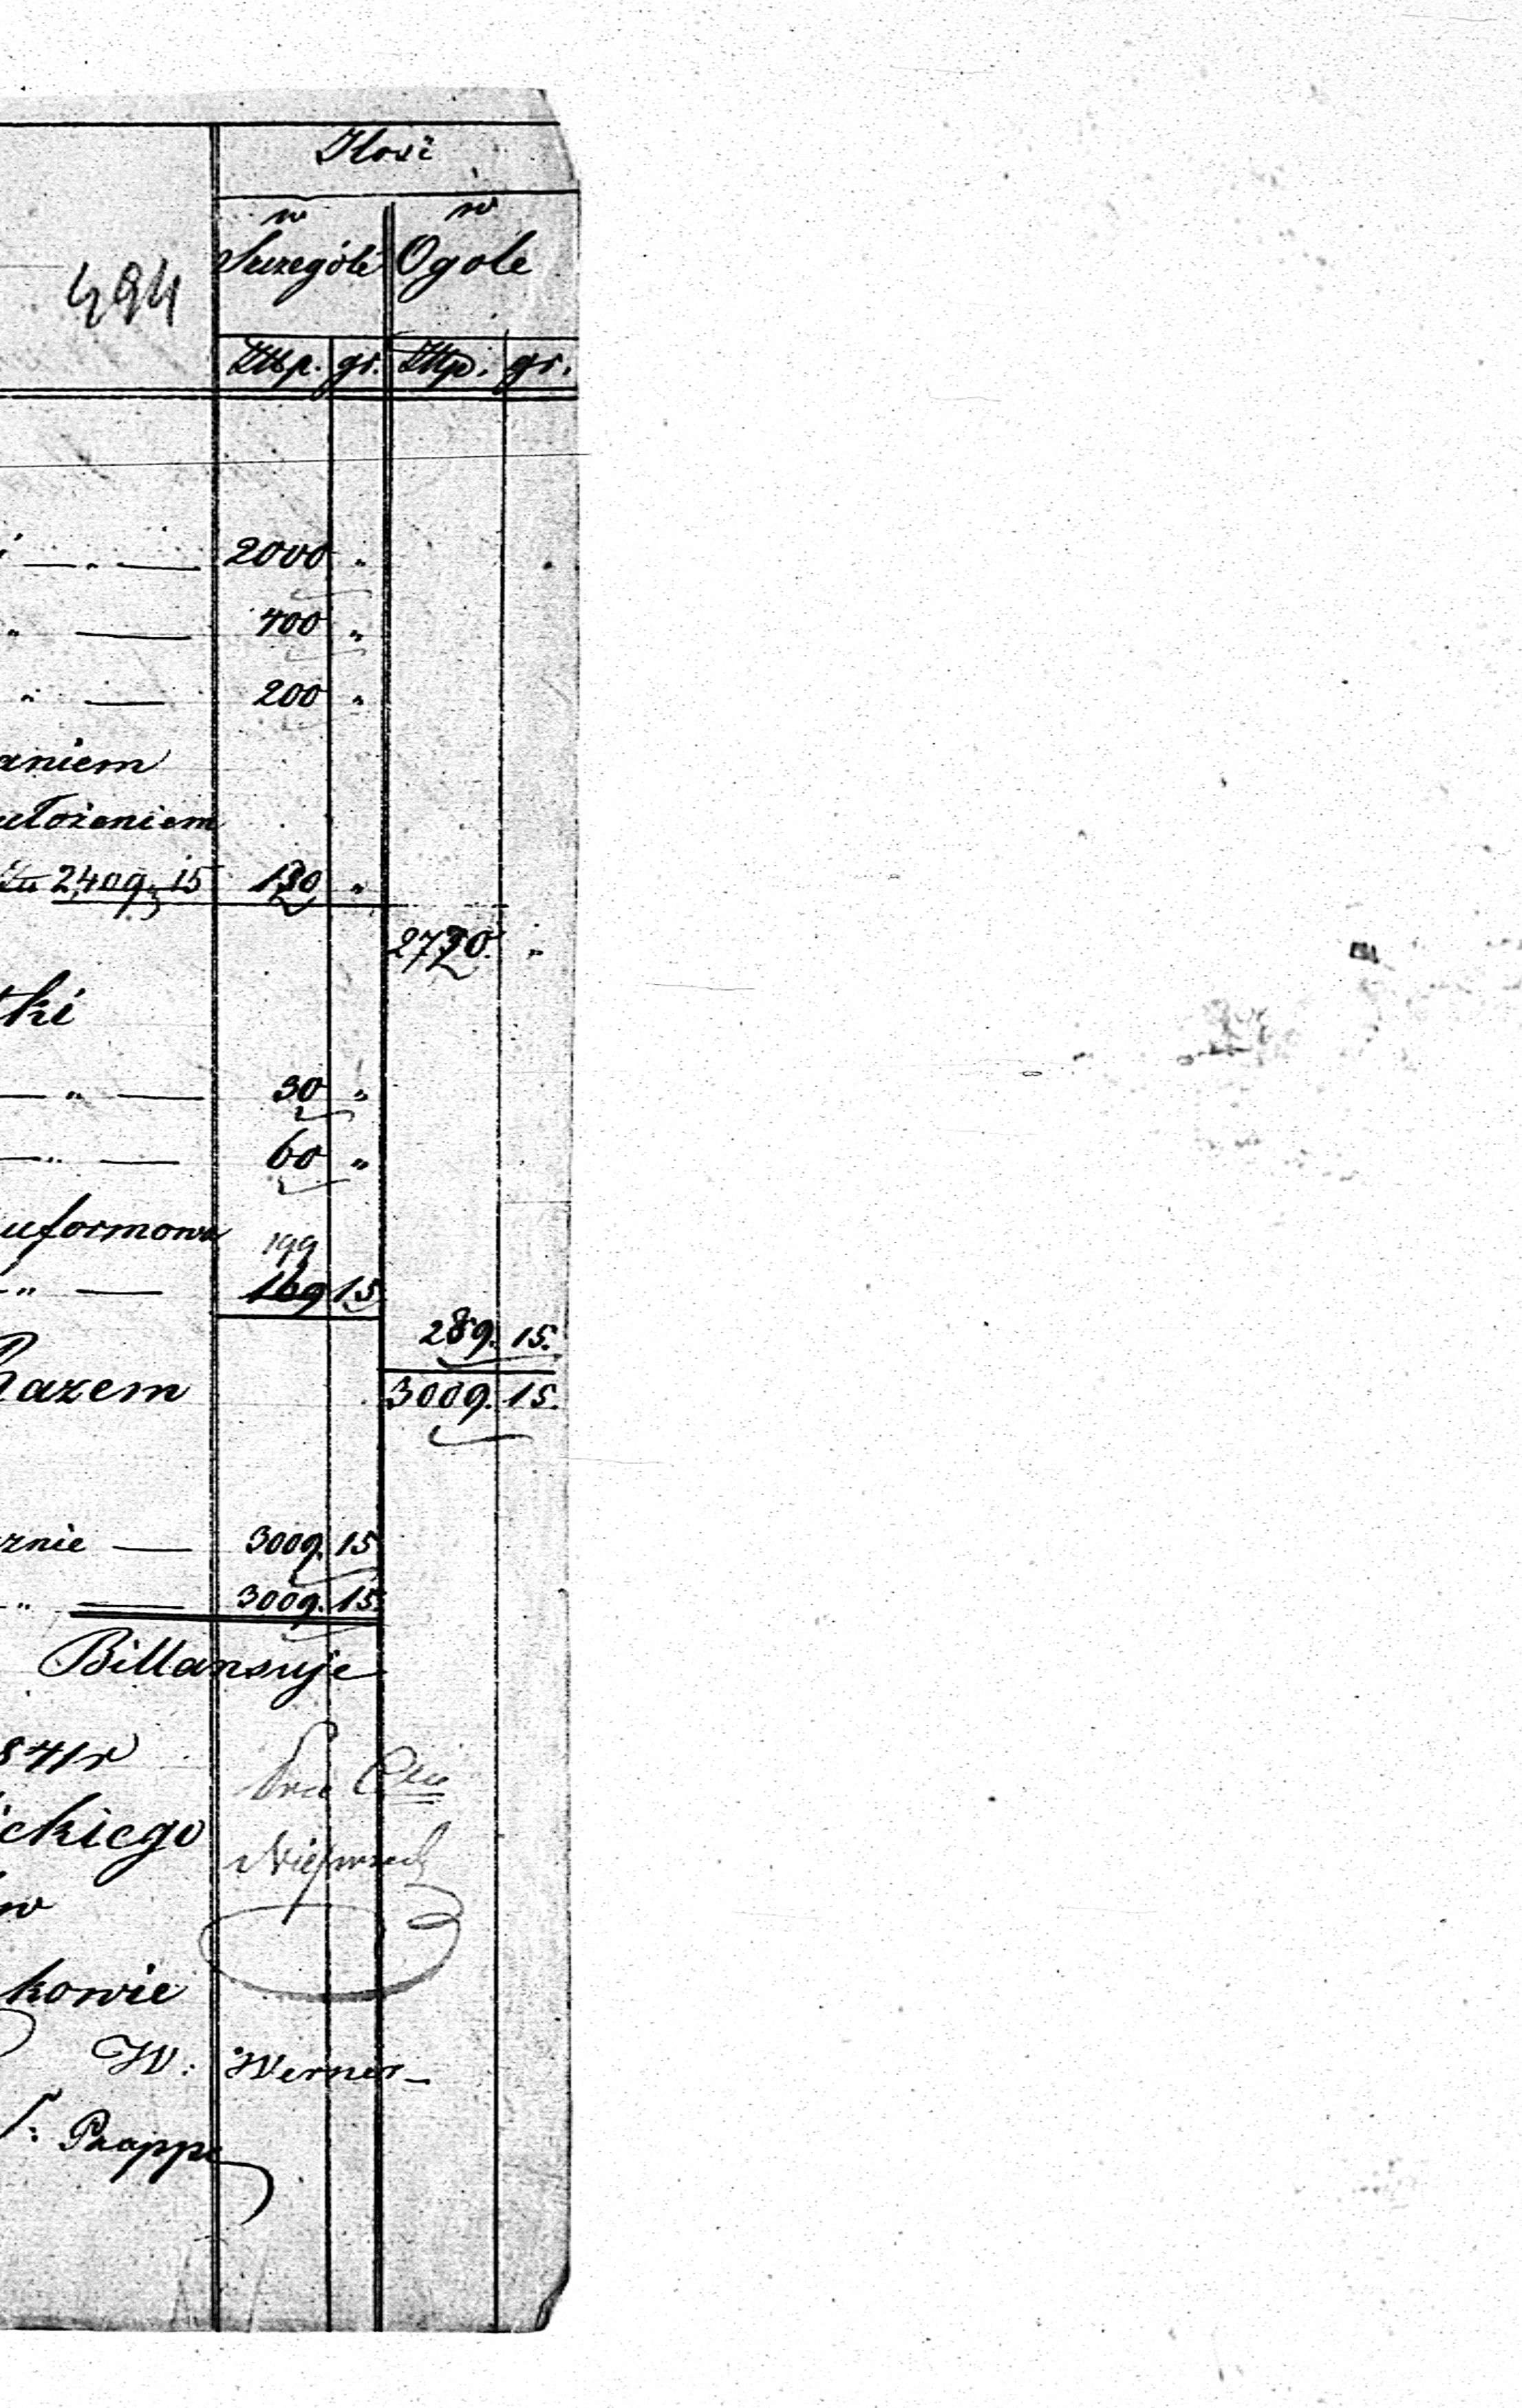 Ilość
w w
Szczególe Ogole
494
Złtp. gr. Złtp. gr.
— „ — 2000 „
„ — 400 „
„ — 200 „
aniem
ułożeniem
2409. 15 120 „
2720. „
tki
— „ — 30 „
— „ — 60 „
uformowa
199
„ — 169 15
289. 15.
Razem 3009. 15.
rznie — 3009. 15
„ — 3009. 15.
Billansuje
841r
ickiego
ów
kowie
W: Werner